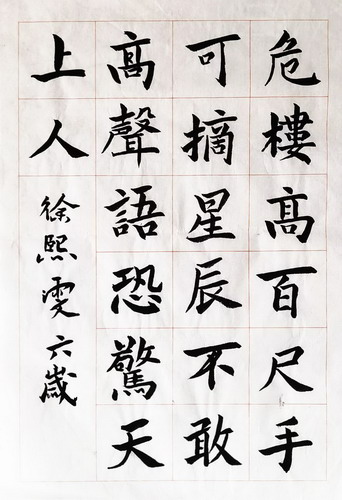 危樓高百尺手
可摘星辰不敢
高聲語恐驚天
上人
徐熙雯六歲